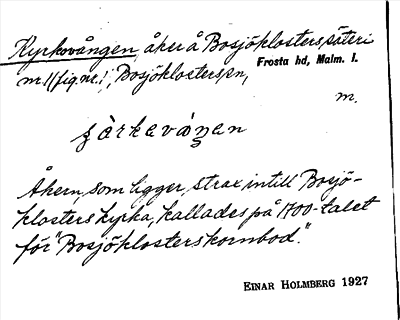 Kyrkovången, åker å Bosjöklosters säteri
m. 1 (fig. nr. 1, Bosjöklosters sn,
Frosta hd, Malm. l.
m.
ʒàrkevåŋen
Åkern, som ligger strax intill Bosjö-
klosters kyrka, kallades på 1700-talet
för "Bosjöklosters kornbod."
EINAR HOLMBERG 1927